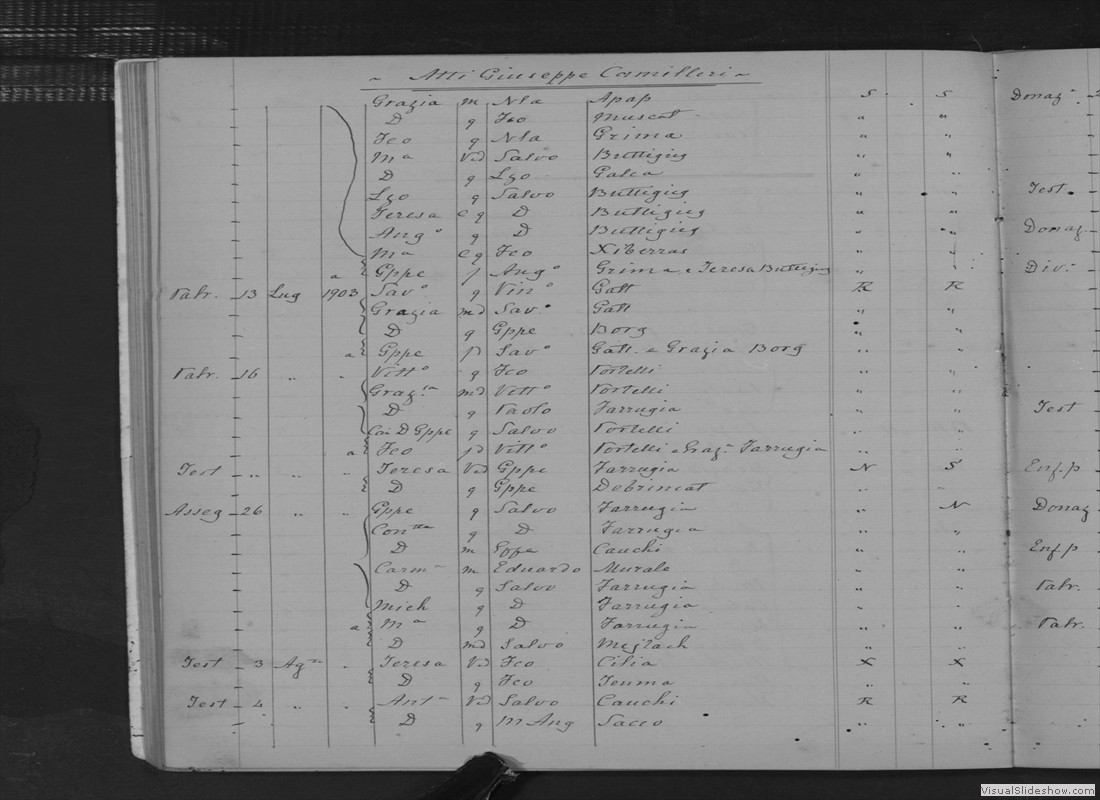 ~ Atti Giuseppe Camilleri ~
Grazia m Nla Apap S S Donaz.
D g Fco Muscat " "
Fco g Nla Grima " "
Ma Ved Salvo Buttigieg " "
D g Lzo Galea " "
Lzo g Salvo Buttigieg " " Test.
Teresa e g D Buttigieg " "
Ang° g D Buttigieg " " Donaz.
Ma e g Fco Xiberras " "
a Gppe f Ang° Grima e Teresa Buttigieg " " Div.
Tabr. 13 Lug 1903 Sav° g Vin° Gatt R R
Grazia md Sav° Gatt " "
D g Gppe Borg " "
a Gppe f Sav° Gatt e Grazia Borg " "
Tabr. 16 " " Vitt° g Fco Portelli " "
Graz.ia md Vitt° Portelli " "
D g Paolo Farrugia " " Test
Can D Gppe g Salvo Portelli " "
a Fco f Vitt° Portelli e Graz.a Farrugia " "
Test " " " Teresa Ved Gppe Farrugia N S Enf.p
D g Gppe Debrincat " "
Asseg 26 " " Gppe g Salvo Farrugia " N Donaz
Con g D Farrugia " "
D m Gppe Cauchi " " Enf.p
Carm m Eduardo Murale " "
D g Salvo Farrugia " " Tabr.
Mich g D Farrugia " "
a Ma g D Farrugia " " Tabr.
D md Salvo Mejlach " "
Test 3 Ag " Teresa Ved Fco Cilia X X
D g Fco Teuma " "
Test 4 " " Ant Ved Salvo Cauchi R R
D g M Ang Sacco " "
VisualSlideshow.com